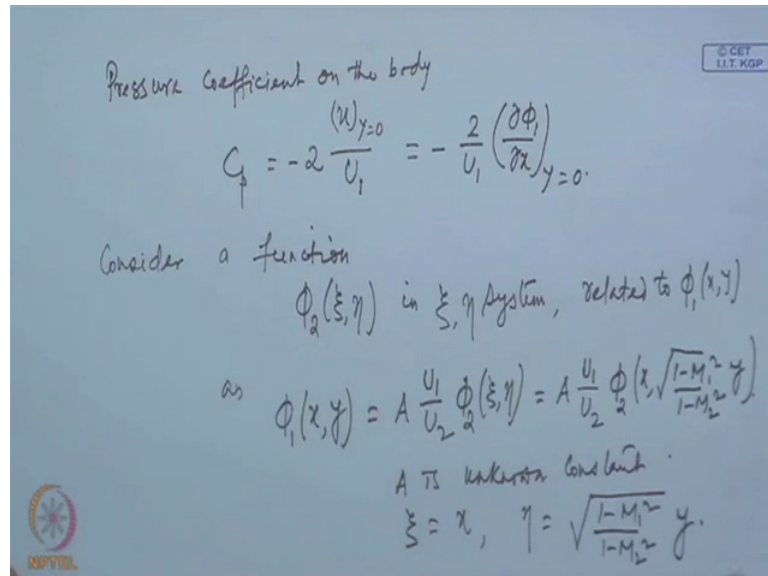 © CET
I.I.T. KGP
Pressure coefficient on the body
C_p = -2 (u)_{y=0} / U_1 = - 2/U_1 (∂ϕ_1/∂x)_{y=0}.
Consider a function
ϕ_2(ξ,η) in ξ, η system, related to ϕ_1(x,y)
as ϕ_1(x,y) = A U_1/U_2 ϕ_2(ξ,η) = A U_1/U_2 ϕ_2(x, √((1-M_1²)/(1-M_2²)) y).
A is unknown constant.
ξ = x, η = √((1-M_1²)/(1-M_2²)) y.
NPTEL